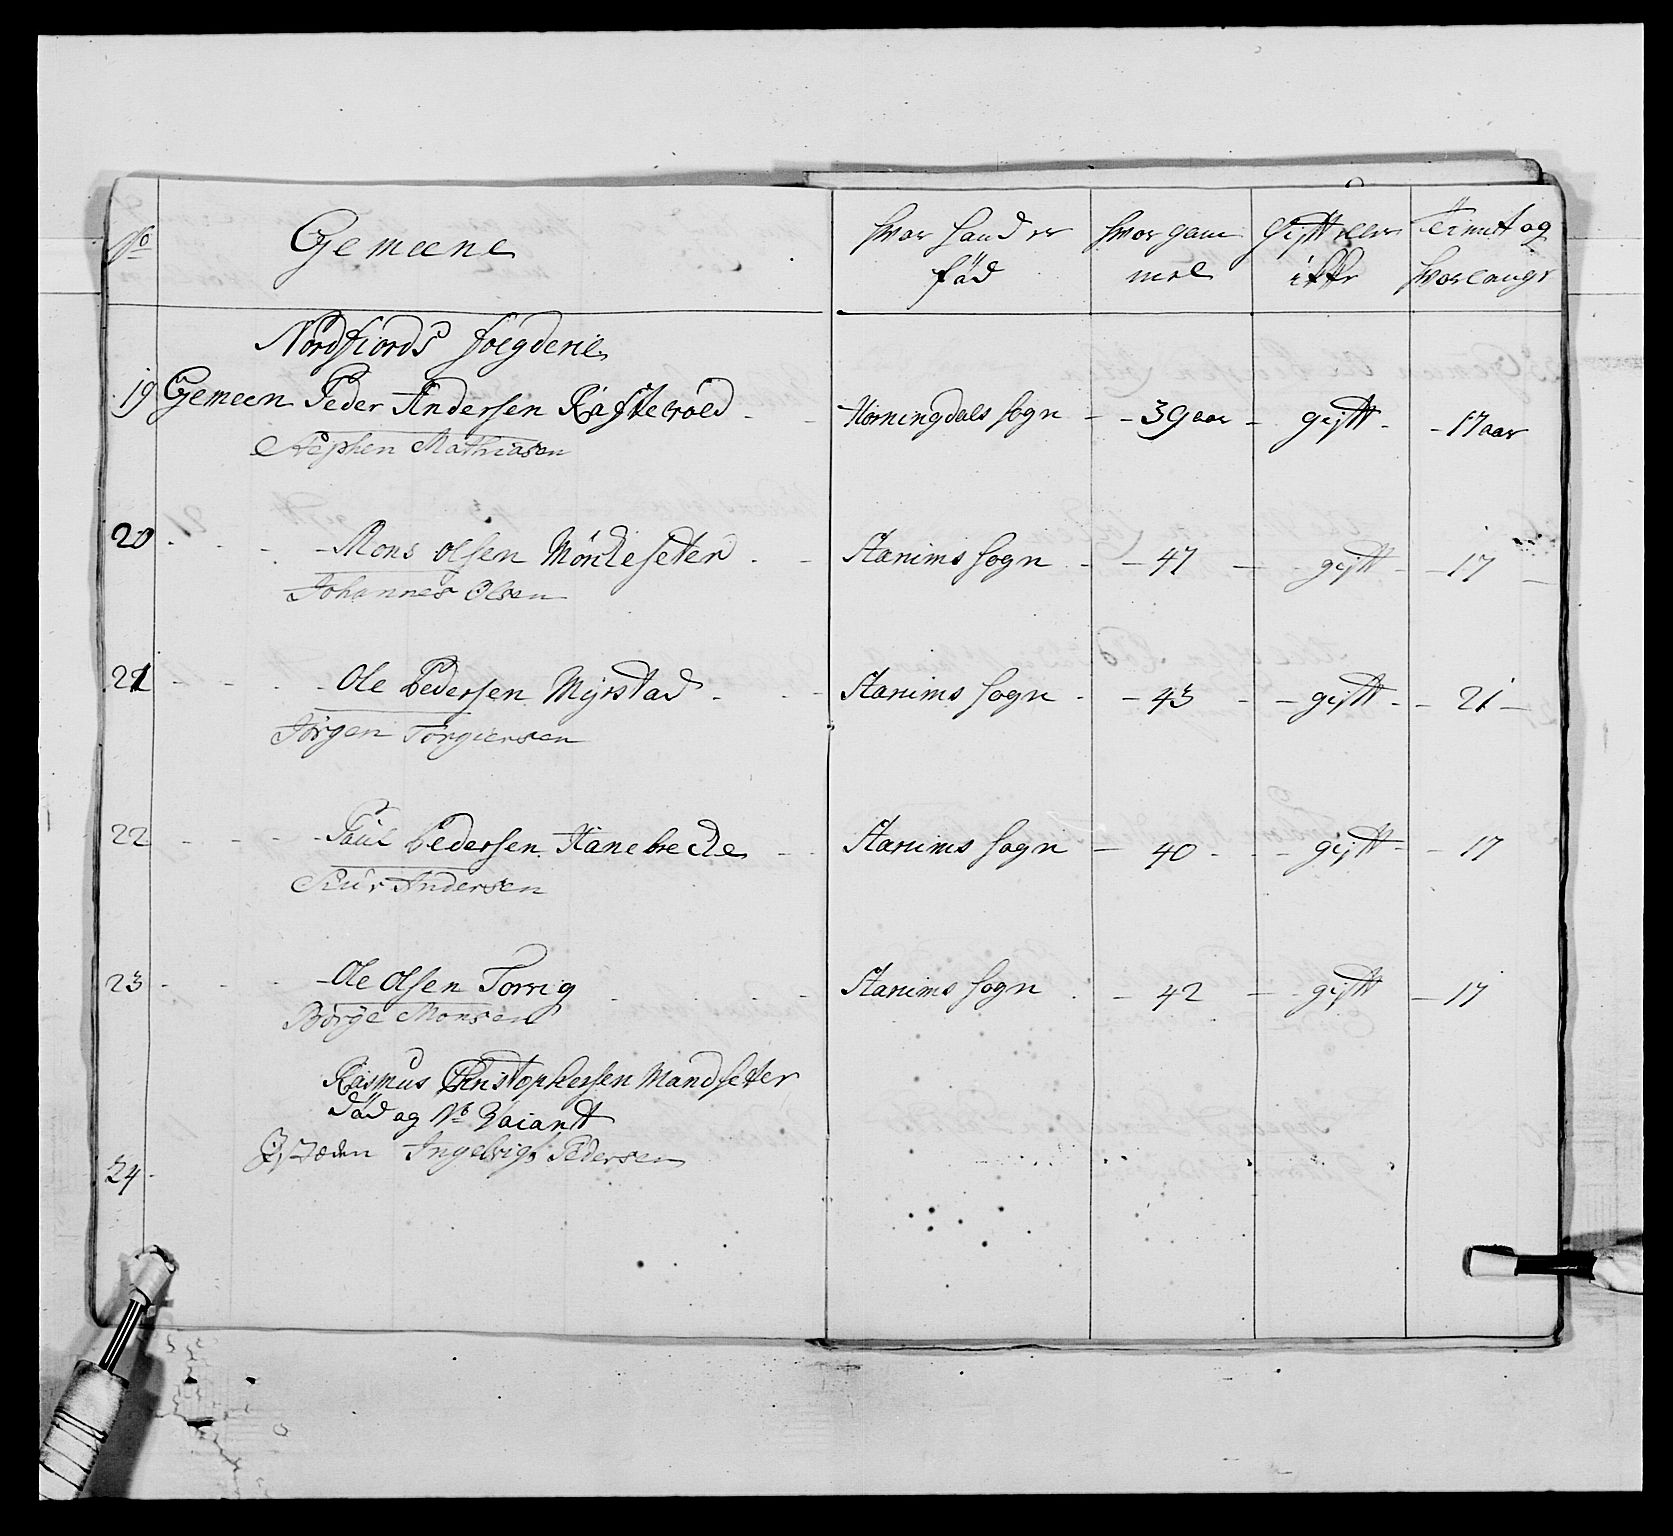 No Gemeene hvor hand er hvor gam Gift eller Tient og
fød mel ikke hvor længe
Nordfiords fogderie
19 Gemeen Peder Andersen Raftevold - Horningdals sogn - 39 aar - gift - 17 aar
Stephen Mathiasen
20 - Mons Olsen - Stanims sogn - 47 - gift - 17
Johannes Olsen
21 - Ole Pedersen Myrstad - Stanims sogn - 43 - gift - 21
Jørgen Torgiersen
22 - Paul Pedersen Hanebrecke - Stanims sogn - 40 - gift - 17
Siur Andersen
23 - Ole Olsen Torrig - Stanims sogn - 42 - gift - 17
Børge Monsen
Rasmus Christophersen Mandseter
død og No Vaiant
Ingebrigt Pedersen
24